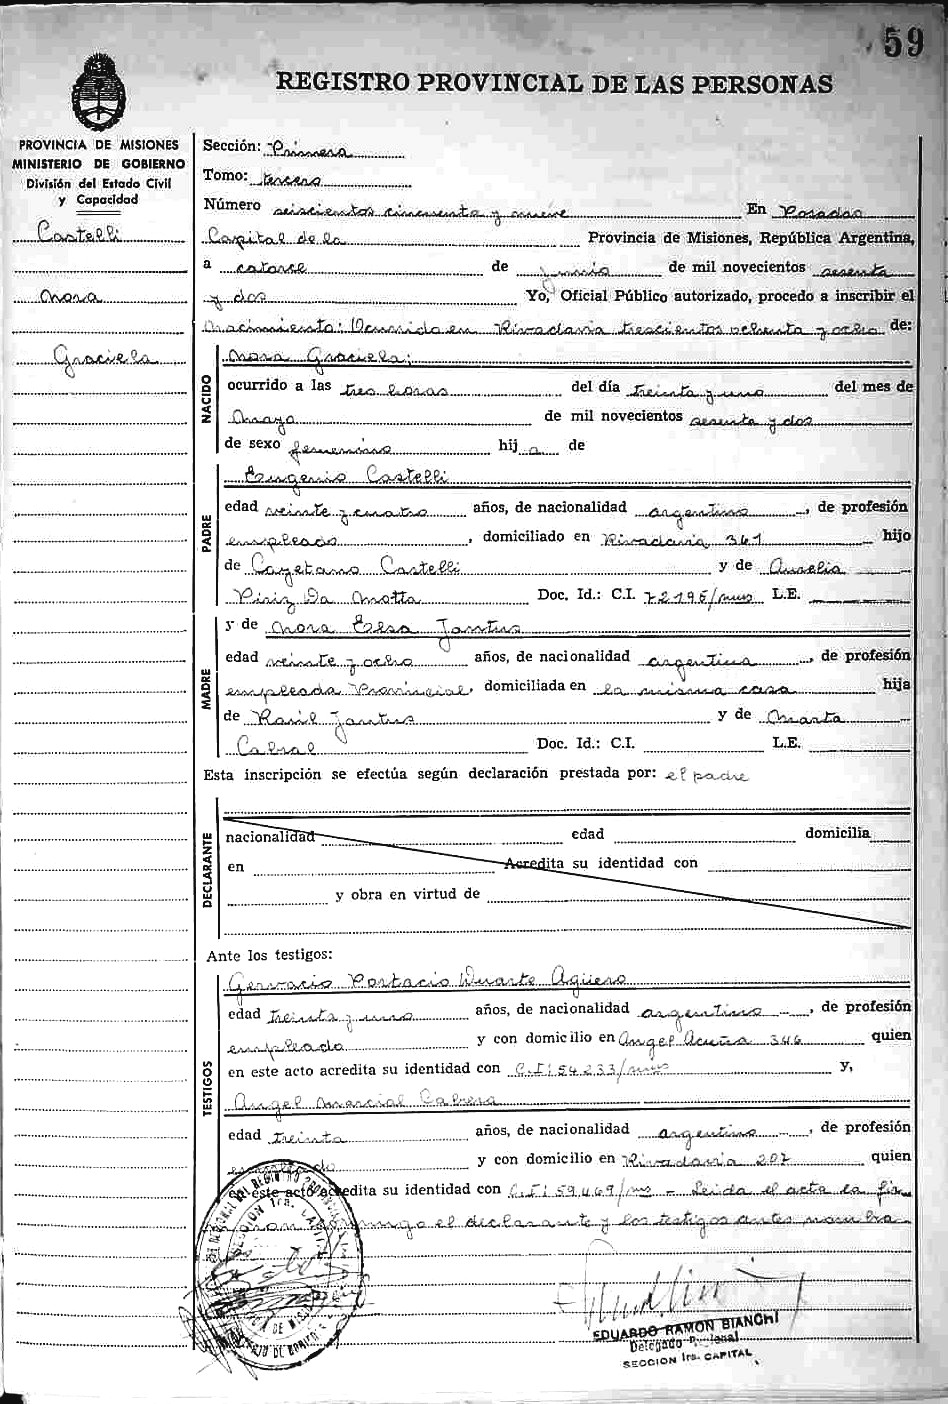 59
REGISTRO PROVINCIAL DE LAS PERSONAS
PROVINCIA DE MISIONES
MINISTERIO DE GOBIERNO
División del Estado Civil
y Capacidad
Castelli
Nora
Graciela
Sección: Primera
Tomo: tercero
Número seiscientos cincuenta y nueve En Posadas
Capital de la Provincia de Misiones, República Argentina,
a catorce de junio de mil novecientos sesenta
y dos Yo, Oficial Público autorizado, procedo a inscribir el
Nacimiento: Ocurrido en Rivadavia trescientos ochenta y ocho de:
NACIDO
Nora Graciela;
ocurrido a las tres horas del día treinta y uno del mes de
Mayo de mil novecientos sesenta y dos
de sexo femenino hij a de
PADRE
Eugenio Castelli
edad veinte y cuatro años, de nacionalidad argentino, de profesión
empleado, domiciliado en Rivadavia 361 hijo
de Cayetano Castelli y de Aurelia
Piriz Da Motta Doc. Id.: C.I. 72196/mnes L.E.
MADRE
y de Nora Elsa Jantus
edad veinte y ocho años, de nacionalidad argentina, de profesión
empleada Provincial, domiciliada en la misma casa hija
de Raúl Jantus y de Marta
Cabral Doc. Id.: C.I. L.E.
Esta inscripción se efectúa según declaración prestada por: el padre
DECLARANTE
nacionalidad edad domicilia
en Acredita su identidad con
y obra en virtud de
Ante los testigos:
TESTIGOS
Gervacio Portacio Duarte Agüero
edad treinta y uno años, de nacionalidad argentino, de profesión
empleado y con domicilio en Angel Acuña 346 quien
en este acto acredita su identidad con C.I: 54233/mns y,
Angel Marcial Cabrera
edad treinta años, de nacionalidad argentino, de profesión
empleado y con domicilio en Rivadavia 207 quien
en este acto acredita su identidad con C.I: 59469/ms - Leida el acta la fir
man conmigo el declarante y los testigos antes nombra
EDUARDO RAMON BIANCHI
Delegado
SECCION 1ra. CAPITAL